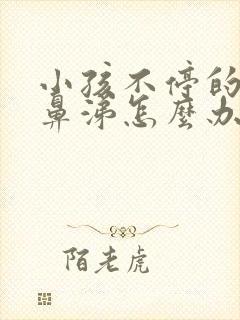 小孩不停的
鼻涕怎麼办
陌老虎